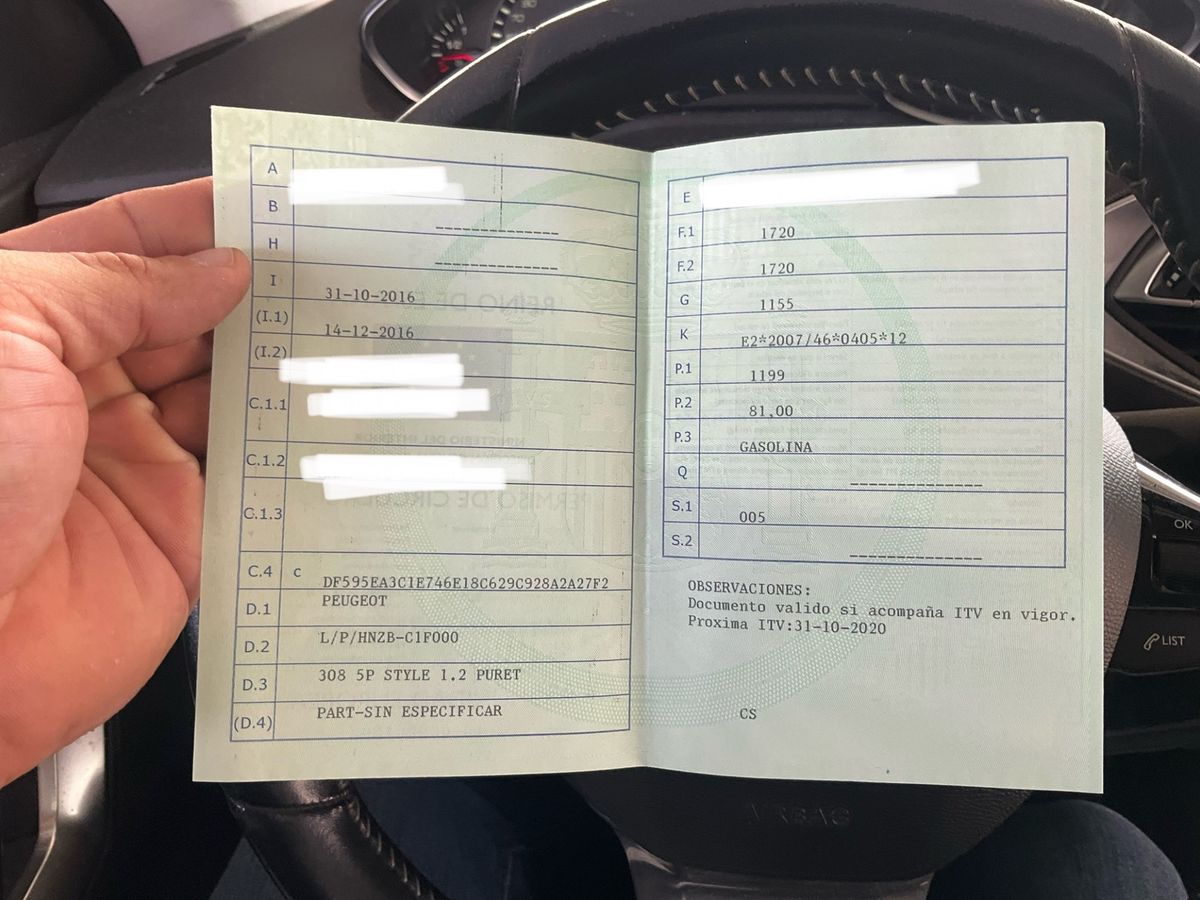 A
B
H
I 31-10-2016
(I.1) 14-12-2016
(I.2)
C.1.1
C.1.2
C.1.3
C.4 c DF595EA3C1E746E18C629C928A2A27F2
D.1 PEUGEOT
D.2 L/P/HNZB-C1F000
D.3 308 5P STYLE 1.2 PURET
(D.4) PART-SIN ESPECIFICAR
E
F.1 1720
F.2 1720
G 1155
K E2*2007/46*0405*12
P.1 1199
P.2 81,00
P.3 GASOLINA
Q
S.1 005
S.2
OBSERVACIONES:
Documento valido si acompaña ITV en vigor.
Proxima ITV:31-10-2020
CS
OK
LIST
AIRBAG